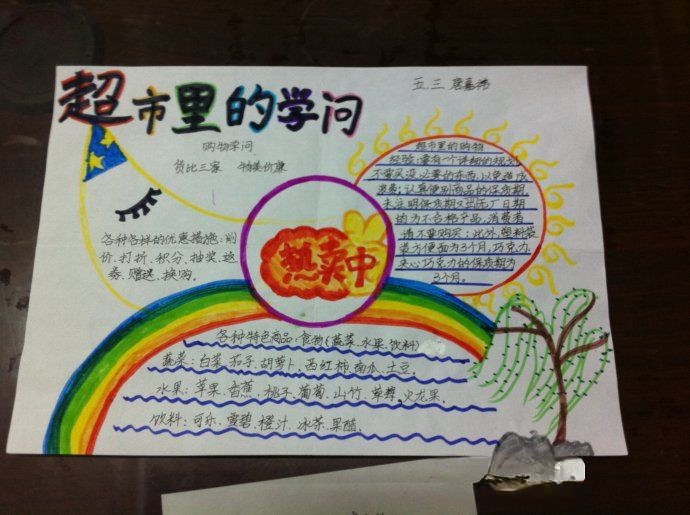 超市里的学问
五.三 唐嘉浩
购物学问
货比三家 物美价廉
各种各样的优惠措施:削
价、打折、积分、抽奖、返
券、赠送、换购。
热卖中
超市里的购物
经验:要有个详细的规划,
不要买没必要的东西,以免造成
浪费;认真便别商品的保质期,
未注明保质期又出无厂日期
均为不合格产品,消费者
请不要购买;此外,塑料袋
装方便面为3个月,巧克力、
夹心巧克力的保质期为
3个月。
各种特色商品:食物(蔬菜、水果、饮料)
蔬菜:白菜、茄子、胡萝卜、西红柿、南瓜、土豆、
水果:苹果、香蕉、桃子、葡萄、山竹、草莓、火龙果、
饮料:可乐、雪碧、橙汁、冰茶、果醋、